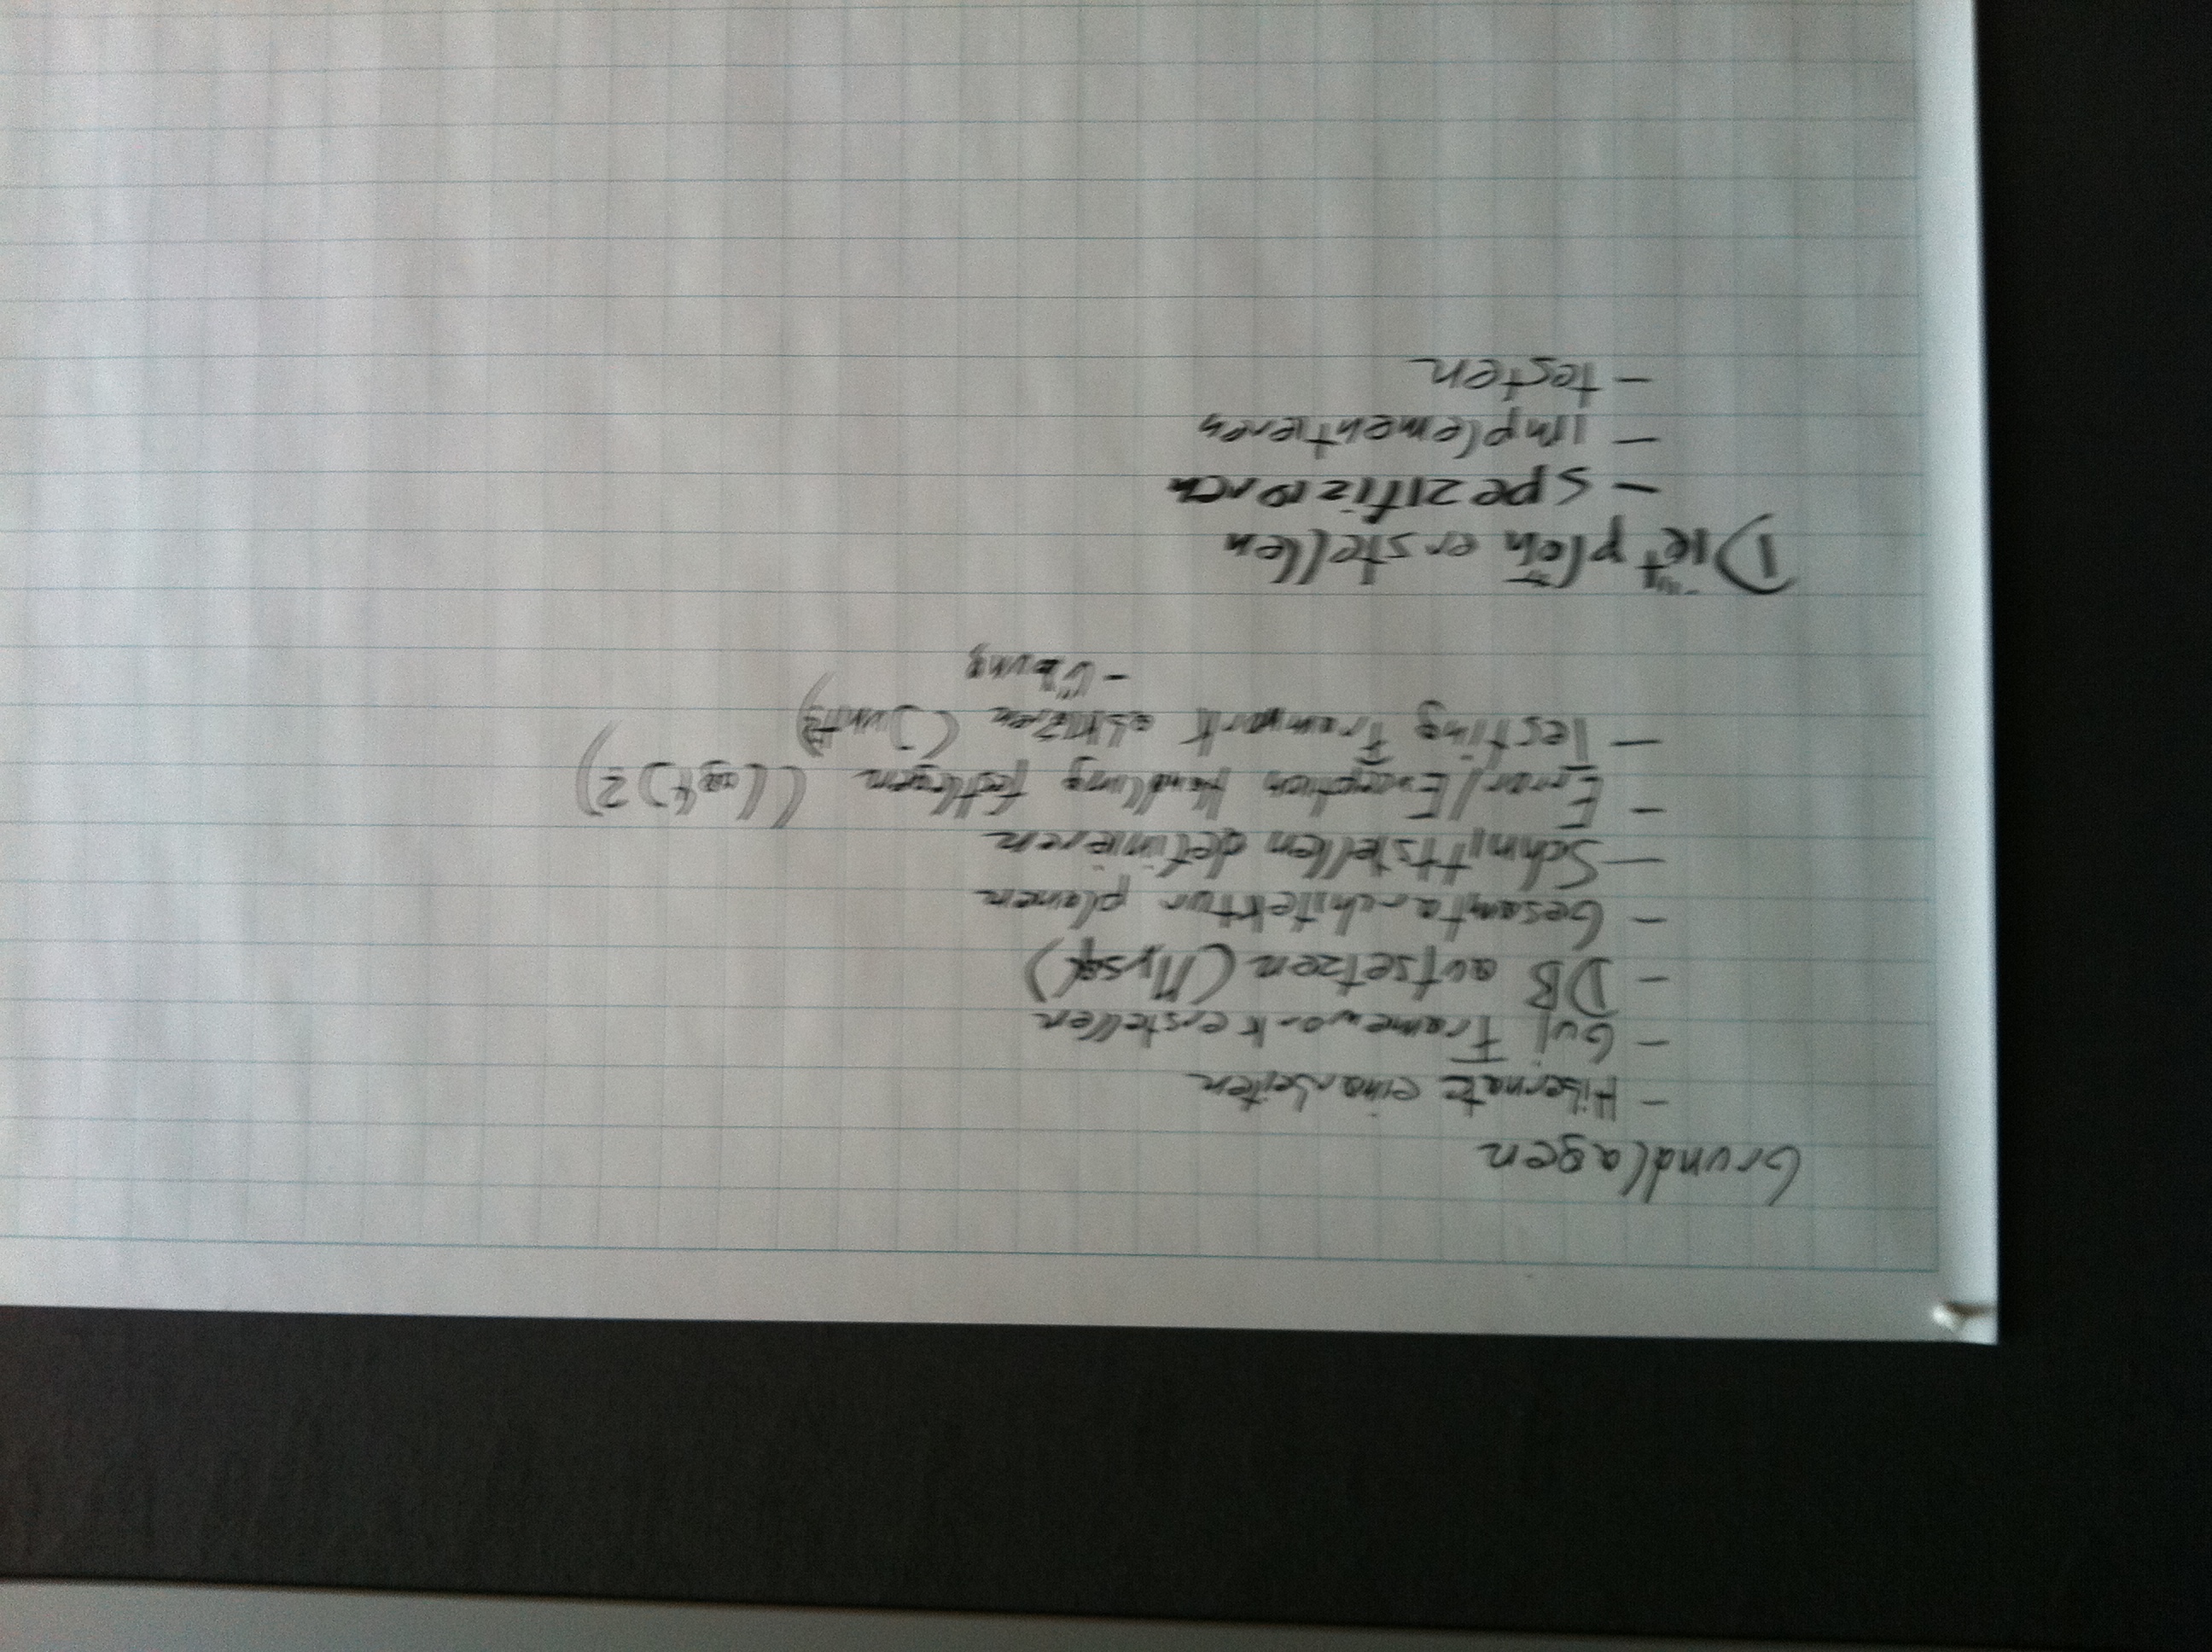 Grundlagen
- Hibernate einarbeiten
- Gui Framework erstellen
- DB aufsetzen (Mysql)
- Gesamtarchitektur planen
- Schnittstellen definieren
- Error/Exception Handling festlegen (log4J?)
- Testing Framwork (Junit?)
- Übung
Diätplan erstellen
- spezifizieren
- implementieren
- testen